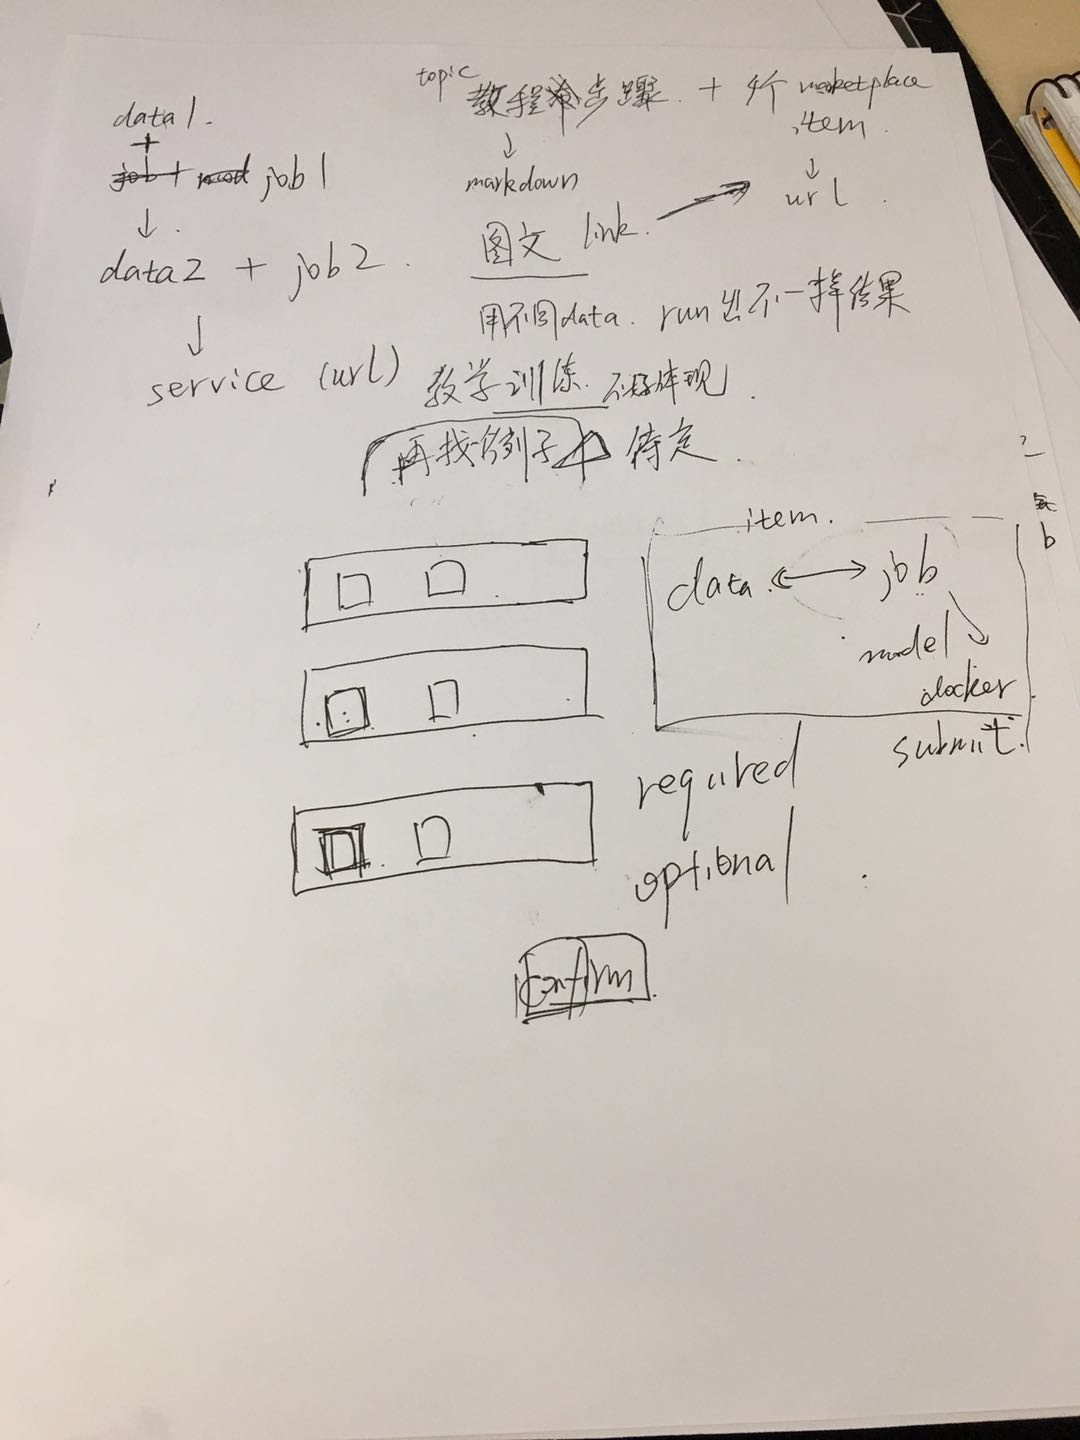 data1.
+
job + mod job1
↓
data2 + job2.
↓
service (url)
topic
教程步骤. + 4个 marketplace item.
↓
markdown
↓
url.
图文 link.
用不同data. run出不一样结果
教学训练. 不好体现.
再找例子 待定.
item.
data. ↔ job
model
docker
submit.
required
optional
Confirm
b